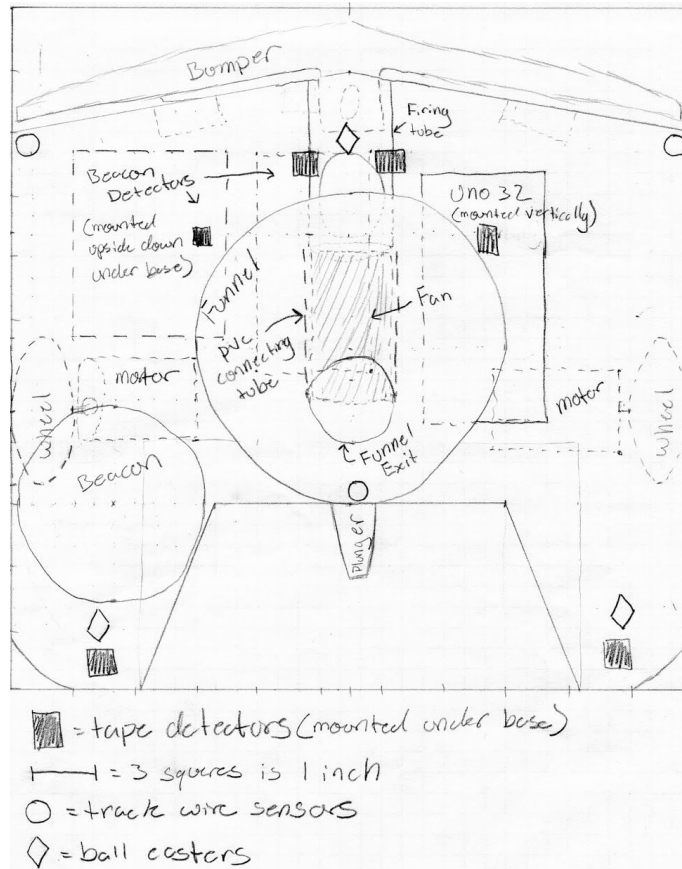 Bumper
Firing
tube
Beacon
Detectors
(mounted
upside down
under base)
Uno 32
(mounted vertically)
Funnel
Fan
PVC
connecting
tube
motor
motor
wheel
wheel
Beacon
Funnel
Exit
Plunger
= tape detectors (mounted under base)
= 3 squares is 1 inch
= track wire sensors
= ball casters